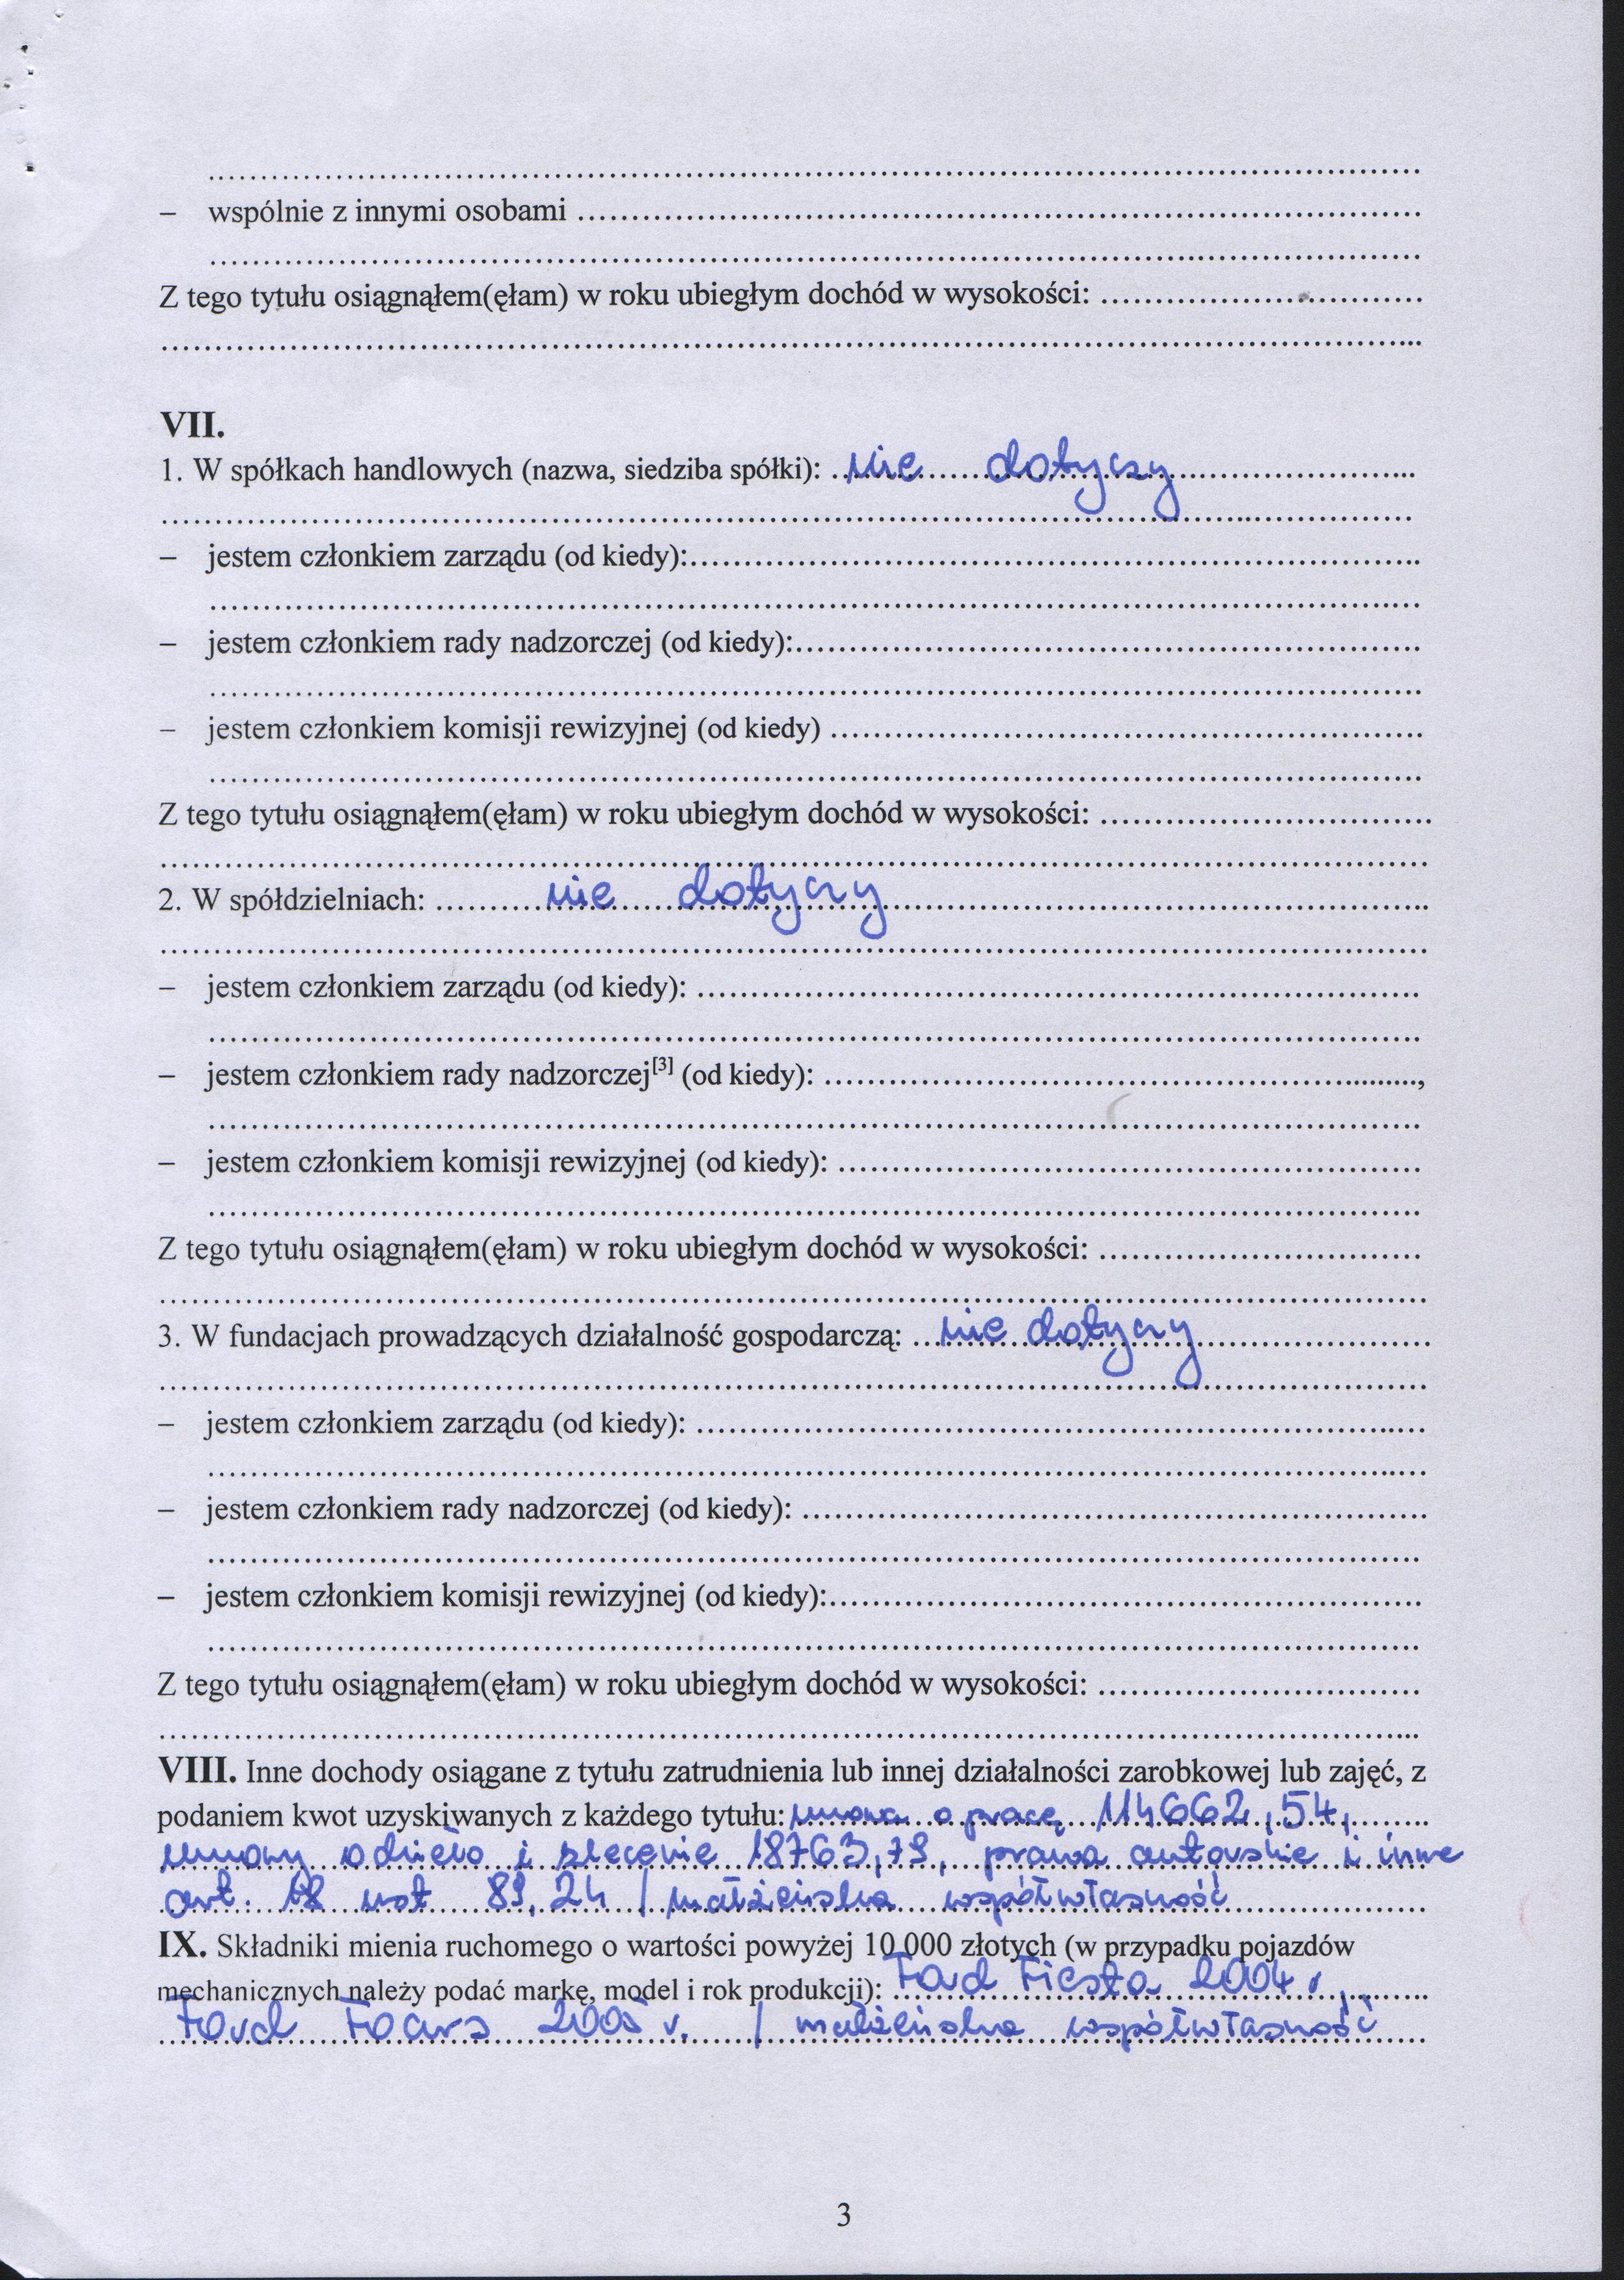 – wspólnie z innymi osobami
Z tego tytułu osiągnąłem(ęłam) w roku ubiegłym dochód w wysokości:
VII.
1. W spółkach handlowych (nazwa, siedziba spółki): nie dotyczy
– jestem członkiem zarządu (od kiedy):
– jestem członkiem rady nadzorczej (od kiedy):
– jestem członkiem komisji rewizyjnej (od kiedy)
Z tego tytułu osiągnąłem(ęłam) w roku ubiegłym dochód w wysokości:
2. W spółdzielniach: nie dotyczy
– jestem członkiem zarządu (od kiedy):
– jestem członkiem rady nadzorczej[3] (od kiedy): ,
– jestem członkiem komisji rewizyjnej (od kiedy):
Z tego tytułu osiągnąłem(ęłam) w roku ubiegłym dochód w wysokości:
3. W fundacjach prowadzących działalność gospodarczą: nie dotyczy
– jestem członkiem zarządu (od kiedy):
– jestem członkiem rady nadzorczej (od kiedy):
– jestem członkiem komisji rewizyjnej (od kiedy):
Z tego tytułu osiągnąłem(ęłam) w roku ubiegłym dochód w wysokości:
VIII. Inne dochody osiągane z tytułu zatrudnienia lub innej działalności zarobkowej lub zajęć, z
podaniem kwot uzyskiwanych z każdego tytułu: umowa o pracę 114662,54,
umowy o dzieło i zlecenie 18763,79, prawa autorskie i inne
art. 18 ust 89,24 / małżeńska współwłasność
IX. Składniki mienia ruchomego o wartości powyżej 10 000 złotych (w przypadku pojazdów
mechanicznych należy podać markę, model i rok produkcji): Ford Fiesta 2004 r.,
Ford Focus 2005 r. / małżeńska współwłasność
3